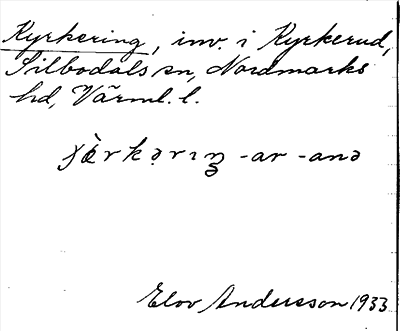 Kyrkering, inv. i Kyrkerud,
Silbodals sn, Nordmarks
hd, Värml. l.
-ar -anə
Elov Andersson 1933